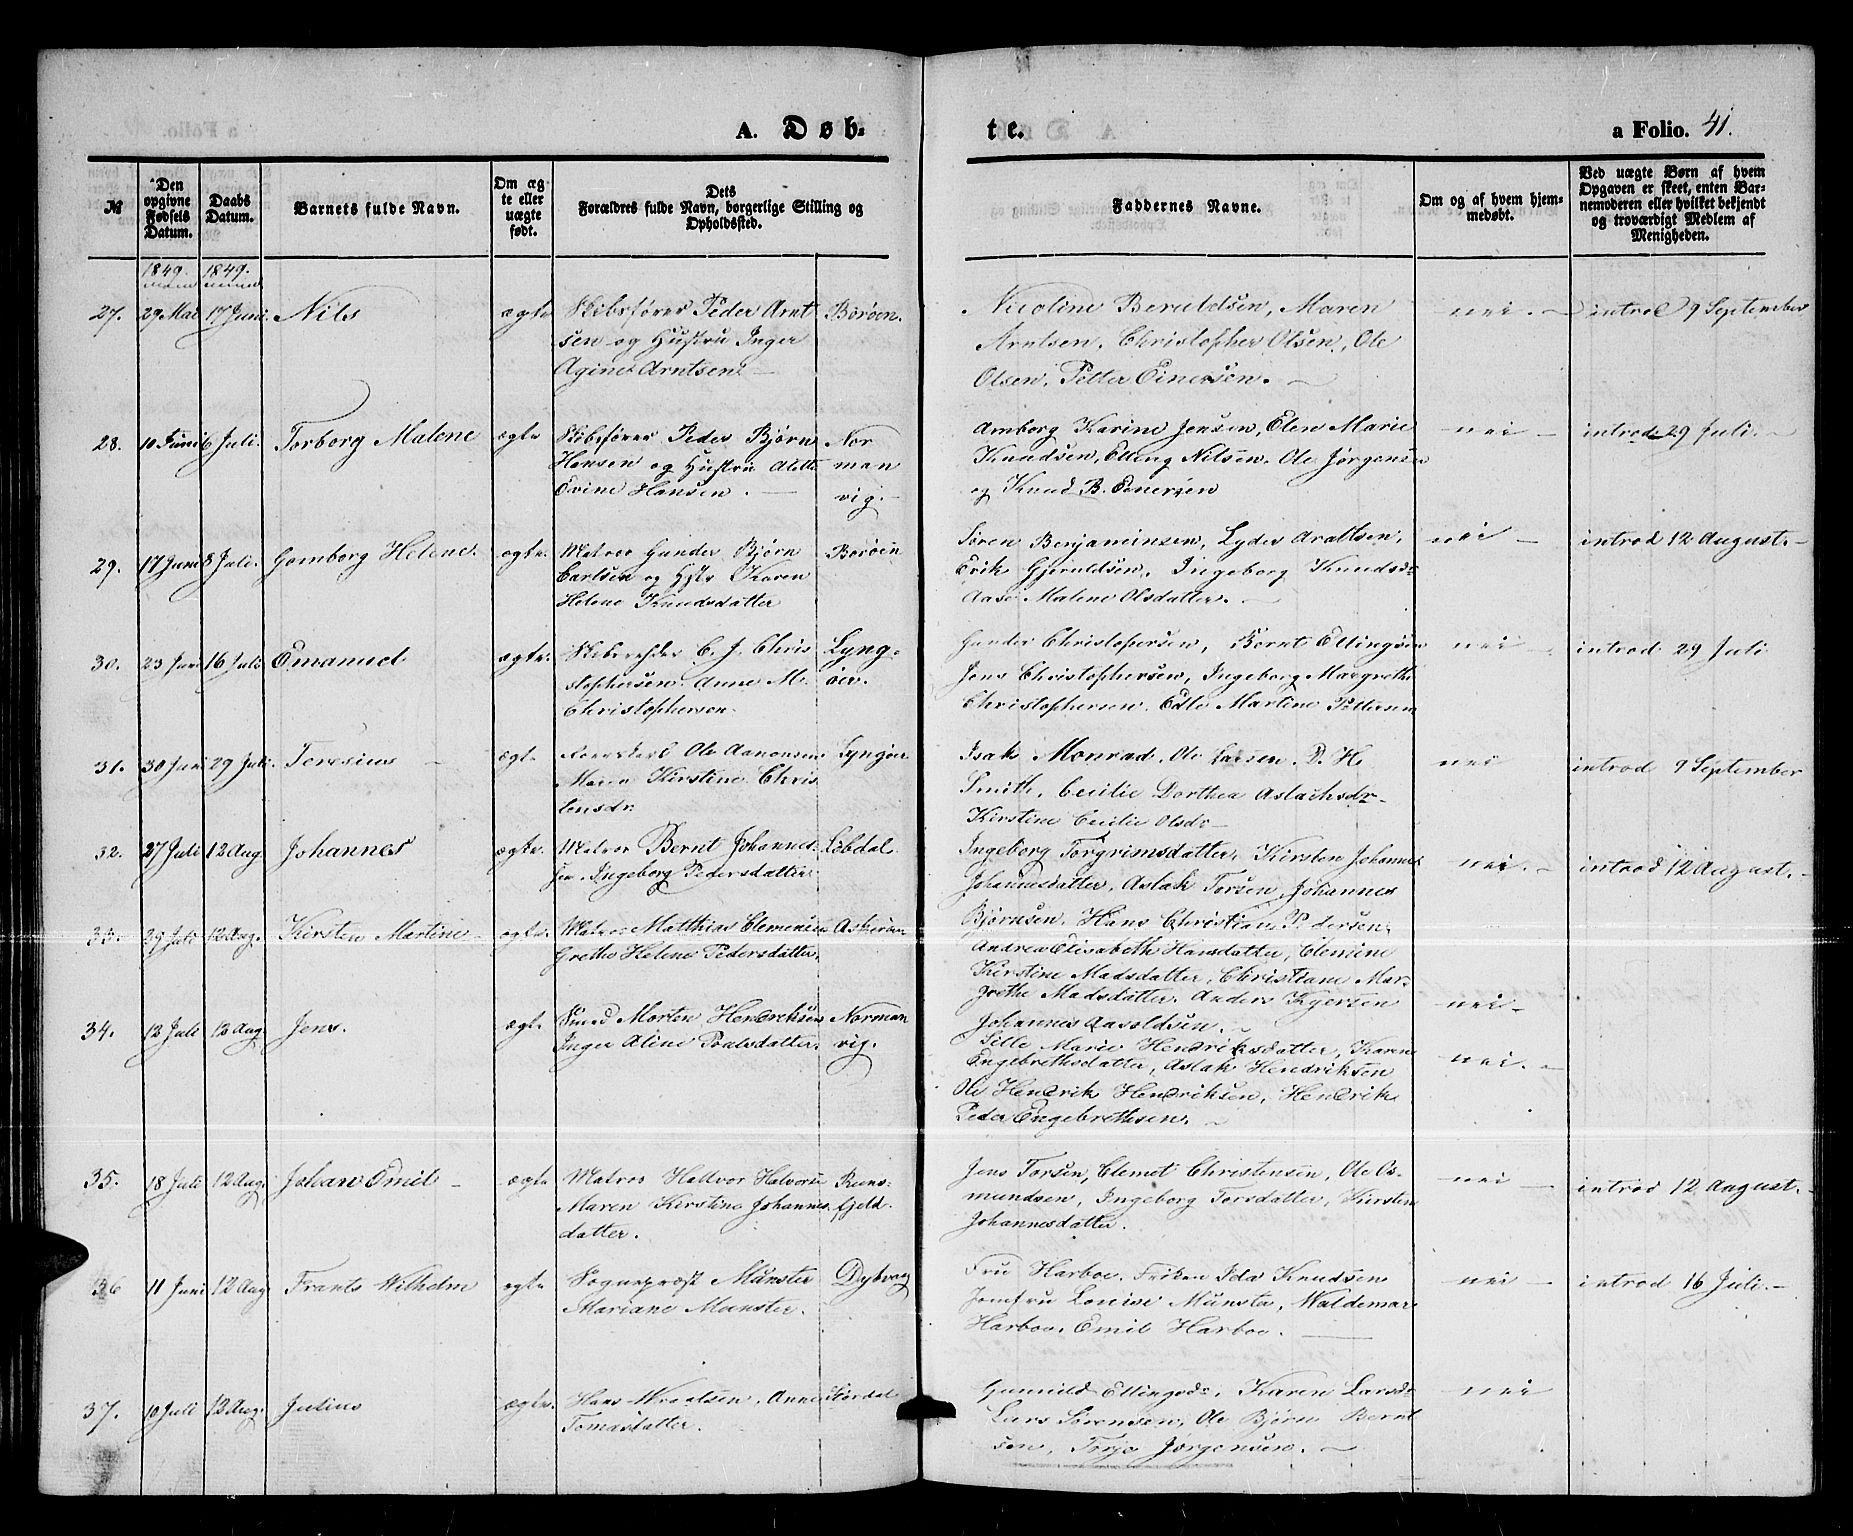 A. Døb-
te.
a Folio. 41.
№
Den opgivne Fødsels Datum.
Daabs Datum.
Barnets fulde Navn.
Om ægte eller uægte født.
Dets Forældres fulde Navn, borgerlige Stilling og Opholdssted.
Faddernes Navne.
Om og af hvem hjemmedøbt.
Ved uægte Børn af hvem Opgaven er skeet, enten Barnemoderen eller hvilket bekjendt og troværdigt Medlem af Menigheden.
1849. 1849.
27. 29 Mai 17 Juni. Nils ægte Skibsfører Peder Arnt Borøen. Nicoline Beruldsen, Maren nei. introd 9 September
sen og Hustru Inger Arntsen, Christopher Olsen, Ole
Agine Arntsen. Olsen, Petter Einersen.
28. 10 Juni 6 Juli. Torborg Malene ægte Skibsfører Peder Bjørn Nor Amborg Karine Jensen, Elen Marie nei introd 29 Juli.
Hansen og Hustru man Knudsen, Elling Nilsen, Ole Jørgensen
Evine Hansen. vig. og Knud B. Einersen
29. 17 Juni 8 Juli. Gomborg Helene. ægte. Matros Gunder Bjørn Borøen Søren Benjaminsen, Lyder Araltsen, nei introd 12 August.
Carlsen og Hstr Karen Erik Gjeruldsen, Ingeborg Knudsdr
Helene Knudsdatter Aase Malene Olsdatter.
30. 23 Juni 16 Juli Emanuel ægte. Skibsrheder C. J. Chris Lyng- Gunder Christophersen, Bernt Ellingsen nei introd 29 Juli
stophersen. Anne M. øer. Jens Christophersen, Ingeborg Margrethe
Christophersen. Christophersen, Edle Martine Pettersen
31. 30 Juni 29 Juli. Teresius ægte Ole Aanonsen Lyngøer Isak Monrad, Ole Larsen, D. H. nei introd 9 September
Maren Kirstine Chris Smith, Cecilie Dorthea Aslachsdr
tensdr. Kirstine Cecilie Olsdr
32. 27 Juli 12 Aug. Johannes ægte. Matros Bernt Johannes- Løbdal Ingeborg Torgrimsdatter, Kirsten Johannes nei. introd 12 August.
sen. Ingeborg Pedersdatter. Johannesdatter, Aslak Torsen, Johannes
Bjørnsen, Hans Christian Pedersen,
33. 29 Juli 12 Aug. Kirsten Martine ægte. Matros Matthias Clemensen Askerøen Andrea Elisabeth Hansdatter, Clemine
Grethe Helene Pedersdatter. Kirstine Madsdatter, Christiane Mar-
grethe Madsdatter, Anders Kjersen nei
Johannes Aavoldsen.
34. 12 Juli 12 Aug Jens. ægte Smed Morten Hendriksen Norman Sille Marie Hendriksdatter, Karen
Inger Aline Poulsdatter. vig. Engebrethsdatter, Aslak Hendriksen nei.
Ole Hendrik Hendriksen, Hendrik
Peder Engebrethsen.
35. 18 Juli 12 Aug. Johan Emil ægte Matros Hallvor Halvorsen Runs- Jens Torsen, Clemet Christensen, Ole Os- nei introd 12 August.
Maren Kirstine Johannes fjeld. mundsen, Ingeborg Torsdatter, Kirsten
datter. Johannesdatter.
36 11 Juni 12 Aug Frants Wilhelm ægte Sognepræst Münster Dybvaag Fru Harboe, Frøken Ida Knudsen nei introd 16 Juli.
Mariane Münster. Jomfru Louise Münster, Waldemar
Harboe, Emil Harboe.
37. 10 Juli 12 Aug. Julius ægte. Hans Wraalsen, Anne Størdal Gunuld Ellingsdr, Karen Larsdr nei
Tomasdatter. Lars Sørensen, Ole Bjørn Bernt
sen, Terje Jørgensen.